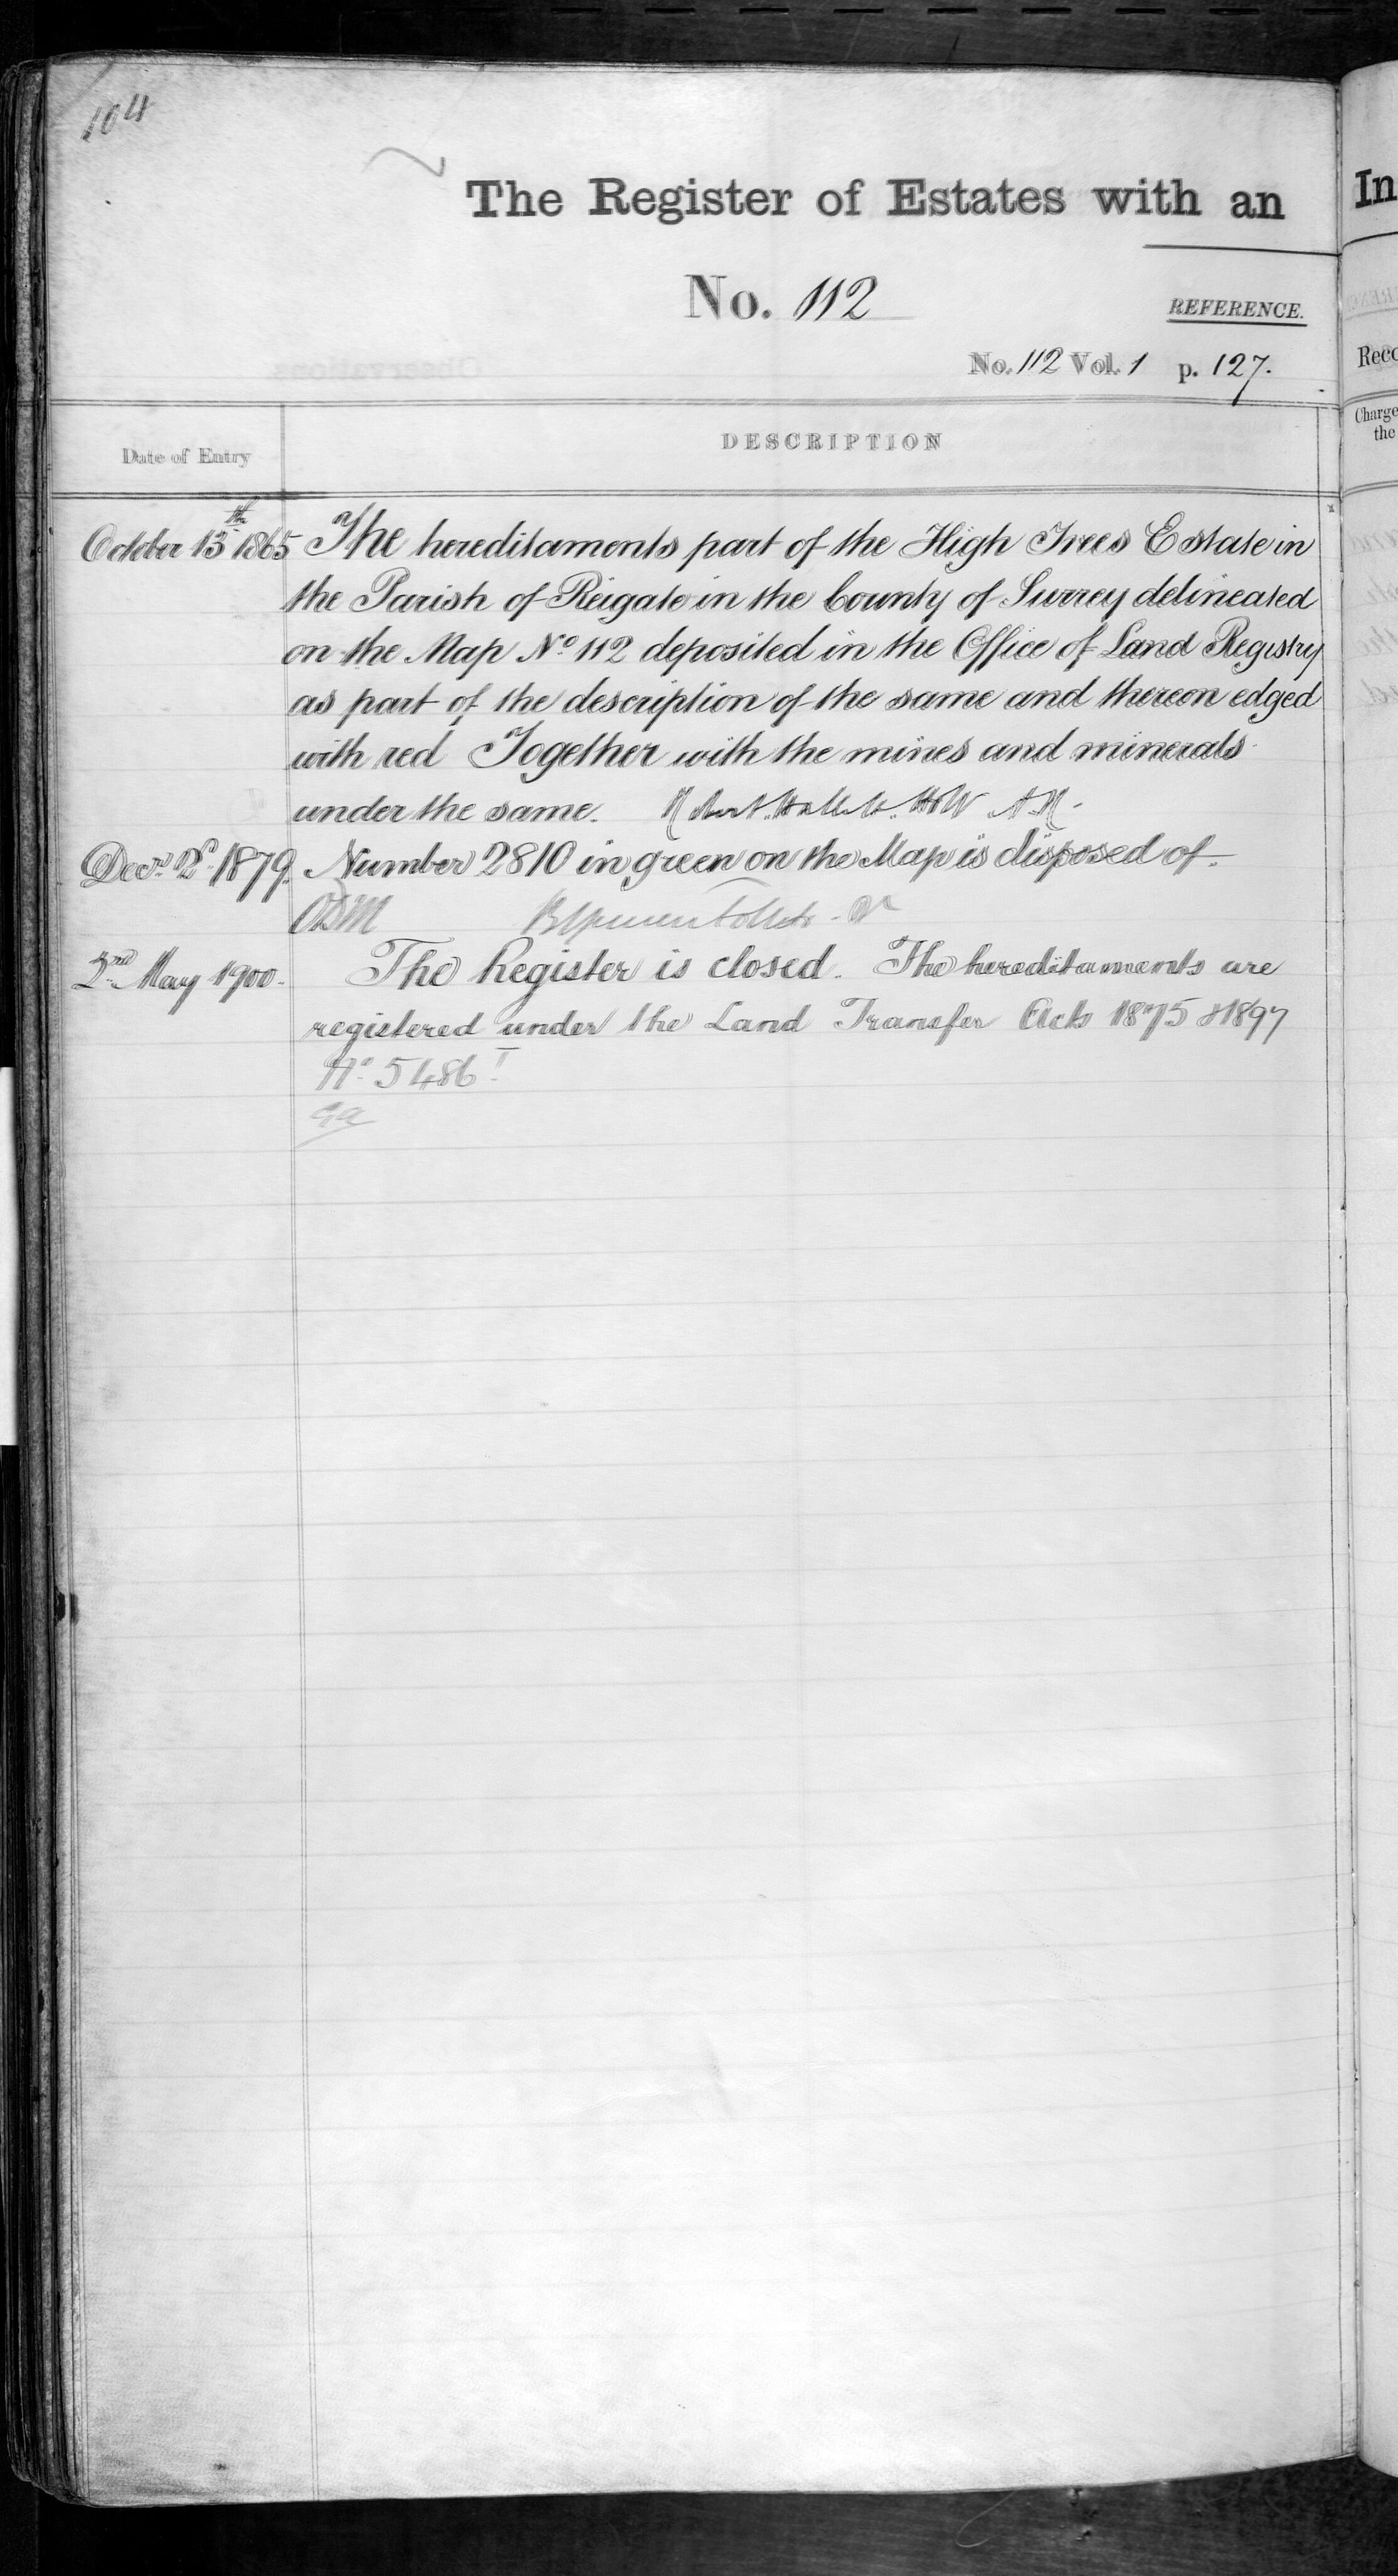 104
The Register of Estates with an
In
No. 112
REFERENCE.
No. 112 Vol. 1 p. 127.
Date of Entry
DESCRIPTION
Charge
the
October 13th 1865 The hereditaments part of the High Trees Estate in
the Parish of Reigate in the County of Surrey delineated
on the Map No 112 deposited in the Office of Land Registry
as part of the description of the same and thereon edged
with red Together with the mines and minerals
under the same.
Decr. 2d. 1879. Number 2810 in green on the Map is disposed of.
2nd May 1900. The Register is closed. The hereditaments are
registered under the Land Transfer Acts 1875 & 1897
No. 5486